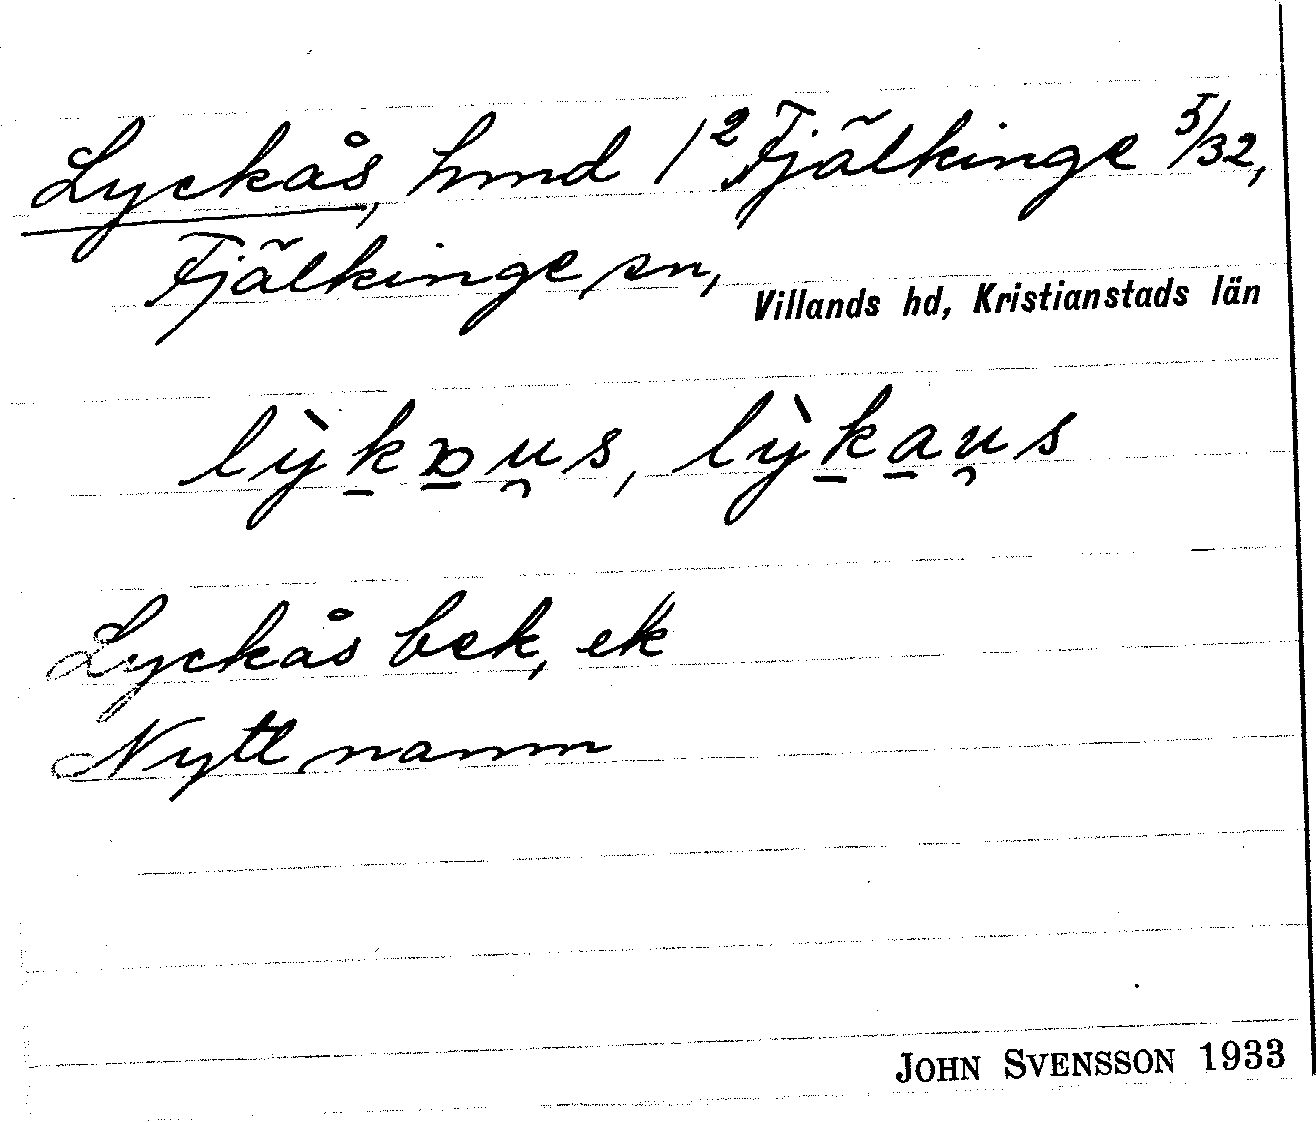 Lyckås, hmd 1² Fjälkinge 5/32,
Fjälkinge sn,
Villands hd, Kristianstads län
lỳk̠ɒ̠u̯s, lỳk̠a̠u̯s
Lyckås bek, ek
Nytt namn
JOHN SVENSSON 1933